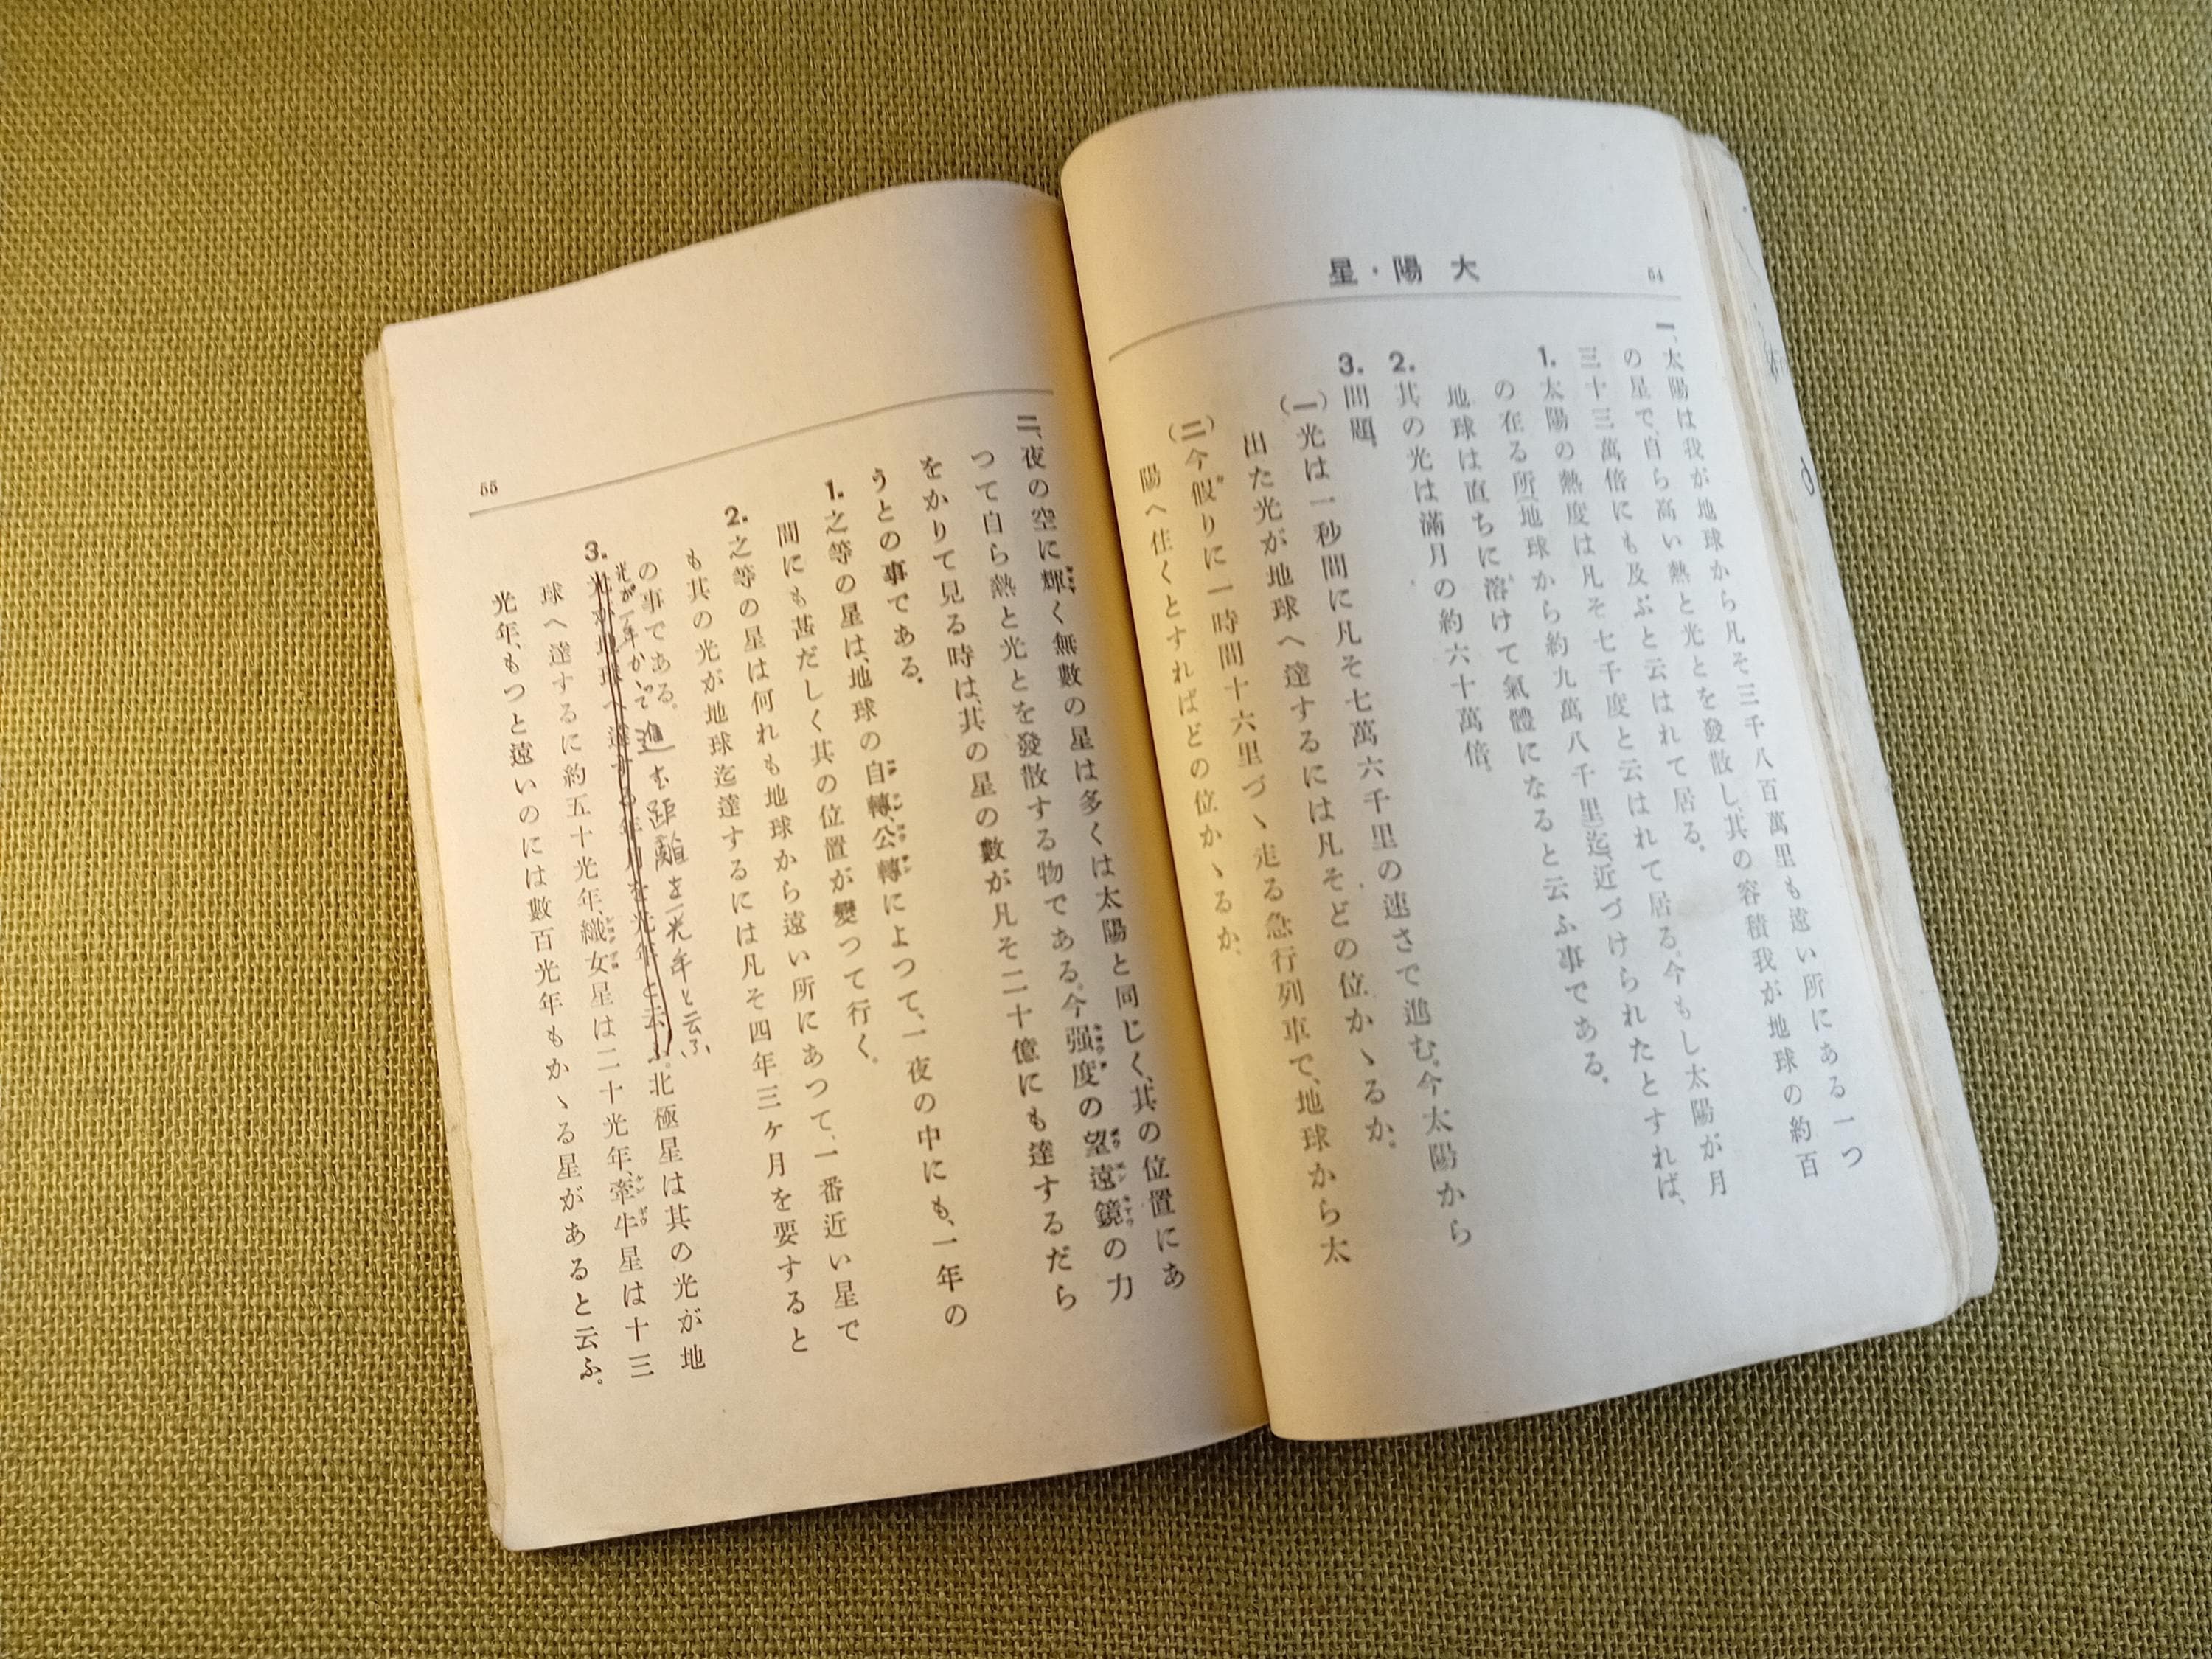 54
大陽・星
一、太陽は我が地球から凡そ三千八百萬里も遠い所にある一つ
の星で、自ら高い熱と光とを發散し、其の容積我が地球の約百
三十三萬倍にも及ぶと云はれて居る。
1. 太陽の熱度は凡そ七千度と云はれて居る。今もし太陽が月
の在る所、地球から約九萬八千里迄、近づけられたとすれば、
地球は直ちに溶けて氣體になると云ふ事である。
2. 其の光は滿月の約六十萬倍。
3. 問題。
(一)光は一秒間に凡そ七萬六千里の速さで進む。今太陽から
出た光が地球へ達するには凡そどの位かゝるか。
(二)今假りに一時間十六里づゝ走る急行列車で、地球から太
陽へ住くとすればどの位かゝるか。
55
二、夜の空に輝く無數の星は多くは太陽と同じく、其の位置にあ
つて自ら熱と光とを發散する物である。今强度の望遠鏡の力
をかりて見る時は、其の星の數が凡そ二十億にも達するだら
うとの事である。
1. 之等の星は、地球の自轉、公轉によつて、一夜の中にも、一年の
間にも甚だしく其の位置が變つて行く。
2. 之等の星は何れも地球から遠い所にあつて、一番近い星で
も其の光が地球迄達するには凡そ四年三ヶ月を要すると
の事である。
光が一年かゝで進む距離を一光年と云ふ
3. 光が地球へ達する年月を光年と云ふ。北極星は其の光が地
球へ達するに約五十光年、織女星は二十光年、牽牛星は十三
光年、もつと遠いのには數百光年もかゝる星があると云ふ。